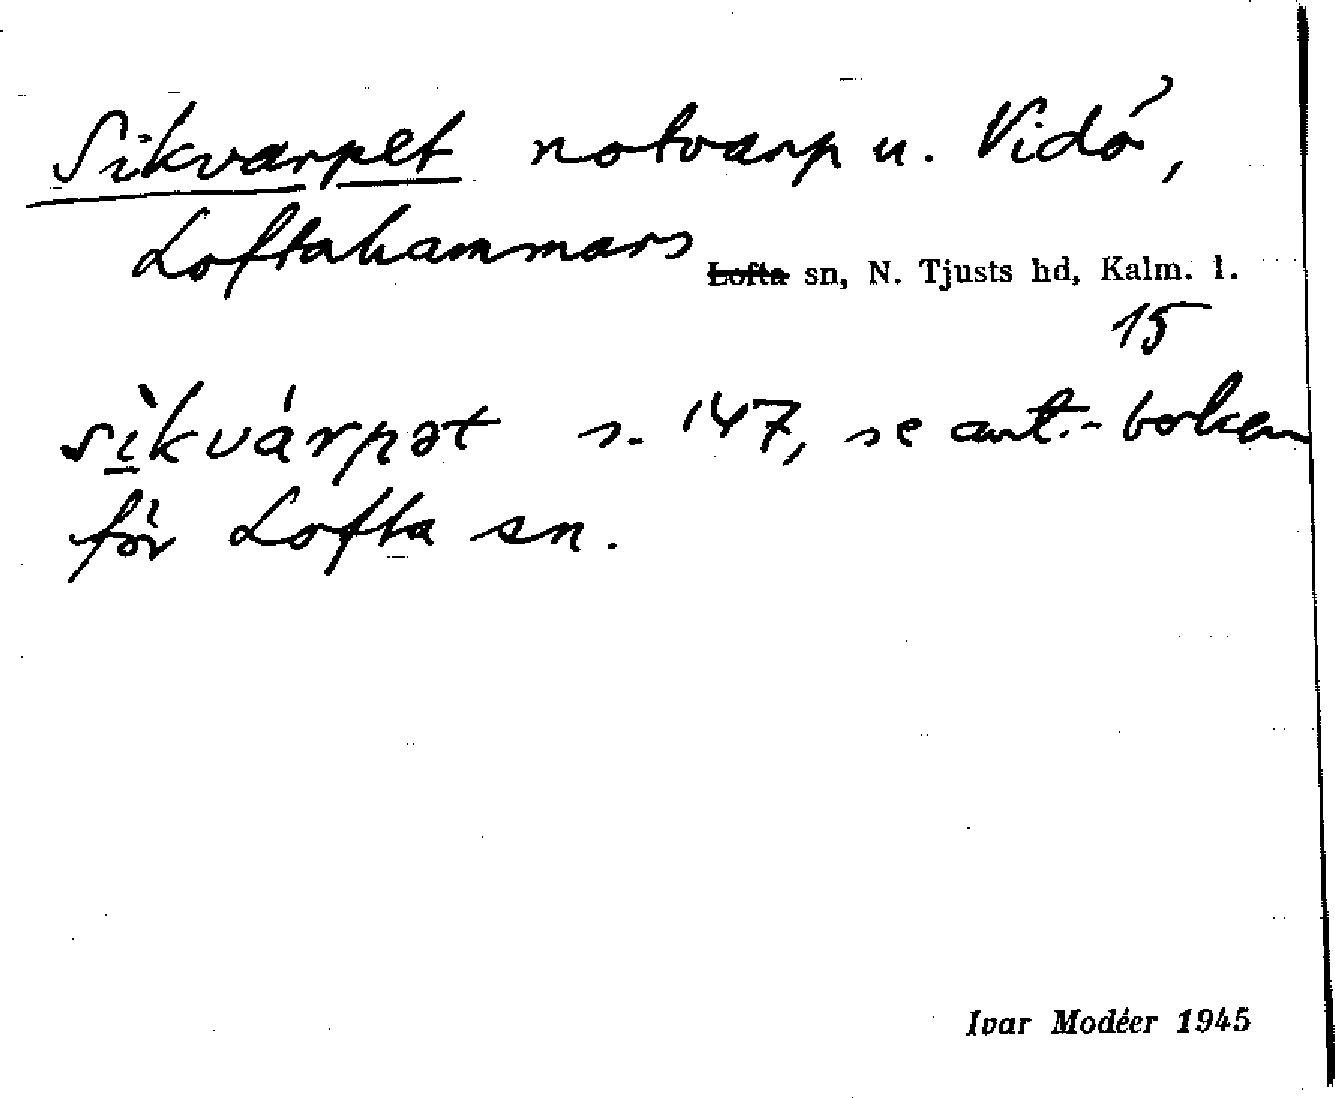 Sikvarpet notvarp u. Vidö,
Loftahammars Lofta sn, N. Tjusts hd, Kalm. l.
15
sìkvárpət s. 147, se ant.-boken
för Lofta sn.
Ivar Modéer 1945